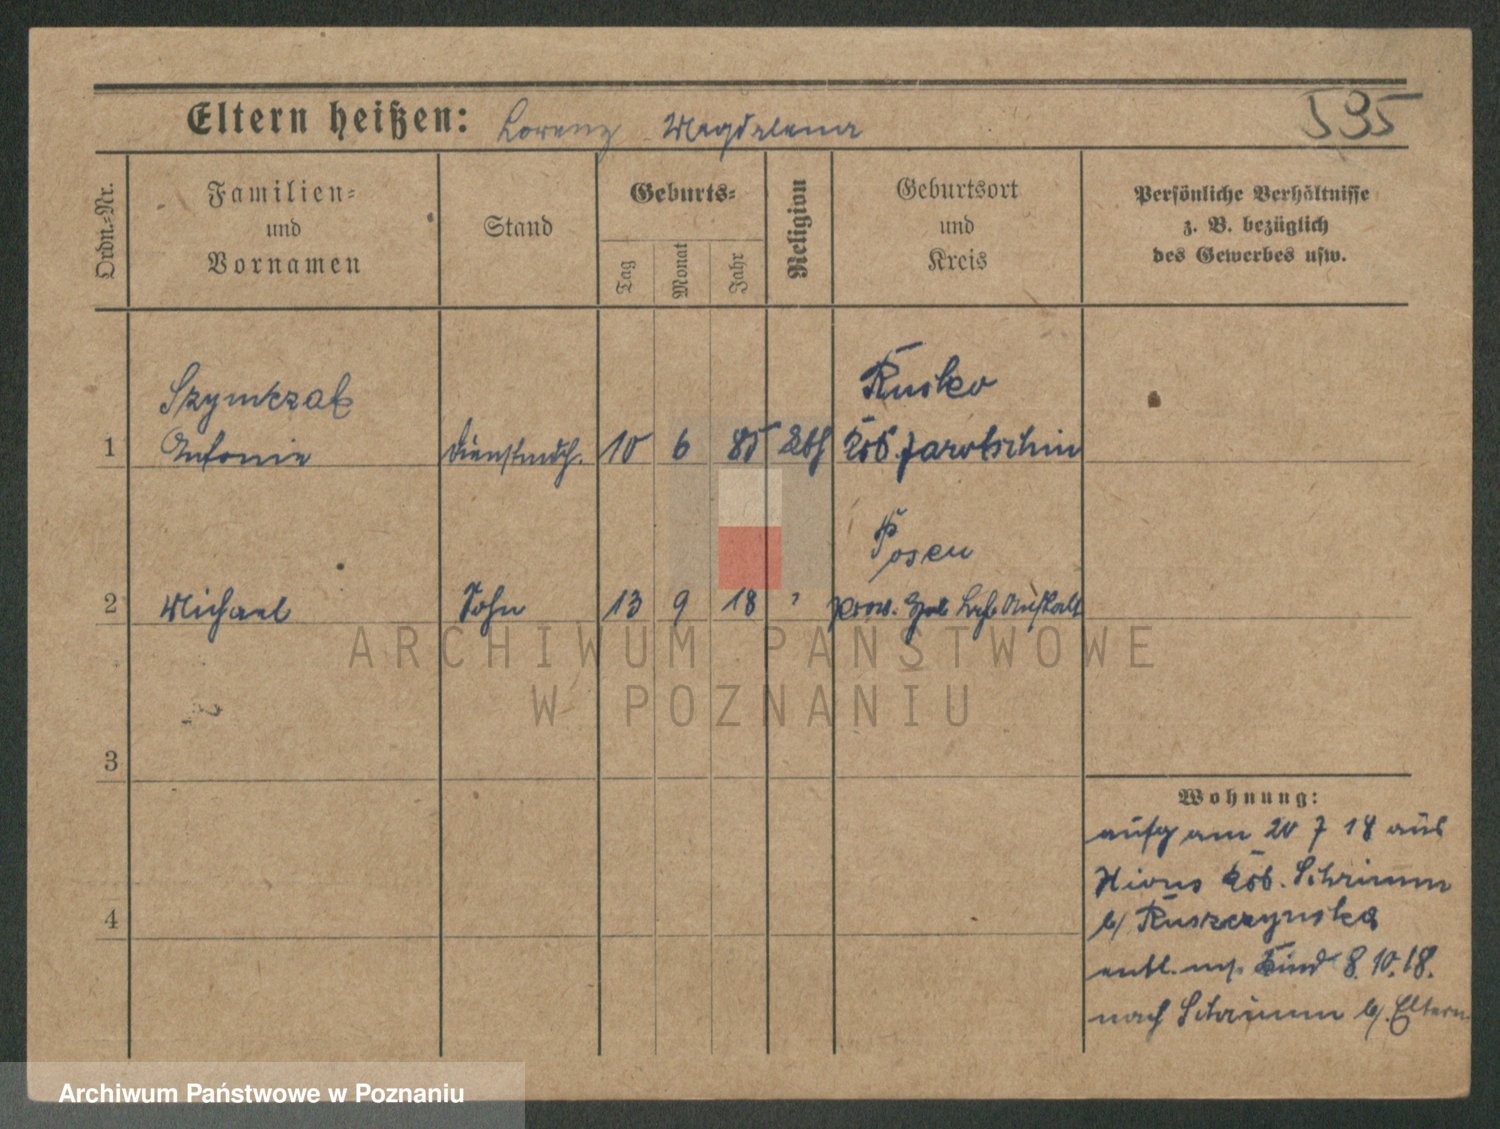 Eltern heißen: Lorenz Magdalena 595
Ordn.-Nr.
Familien-
und
Vornamen
Stand
Geburts-
Tag
Monat
Jahr
Religion
Geburtsort
und
Kreis
Persönliche Verhältnisse
z. B. bezüglich
des Gewerbes usw.
Szymczak
Rusko
1 Antonie Dienstmdch. 10 6 85 kth Krs. Jarotschin
Posen
2 Michael Sohn 13 9 18 " prov. Heb Lehr Anstalt
3
Wohnung:
aufg am 20 7 18 aus
Xions Krs. Schrimm
b/ Ruszczynska
entl. m/. Kind 8.10.18.
nach Schrimm b/. Eltern
4
ARCHIWUM PAŃSTWOWE
W POZNANIU
Archiwum Państwowe w Poznaniu